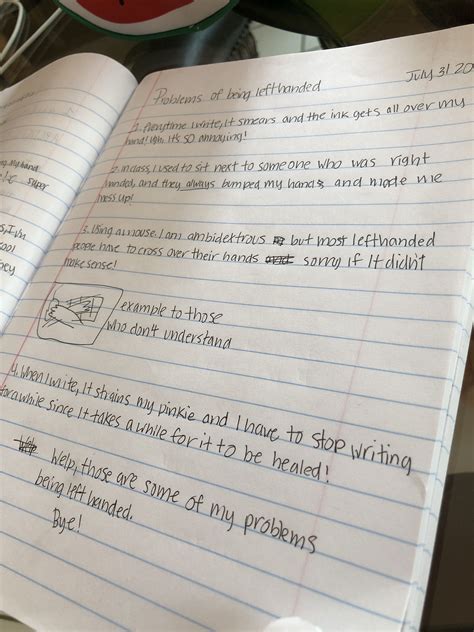 Problems of being lefthanded
July 31 20
1. Everytime I write, it smears and the ink gets all over my
hand! Ugh, it's SO annoying!
2. In class, I used to sit next to someone who was right
handed, and they always bumped my hands, and made me
mess up!
3. Using a mouse. I am ambidextrous but most lefthanded
people have to cross over their hands sorry if it didn't
make sense!
example to those
who don't understand
4. When I write, it strains my pinkie and I have to stop writing
for a while since it takes a while for it to be healed!
Welp, those are some of my problems
being left handed.
Bye!
my hand
super